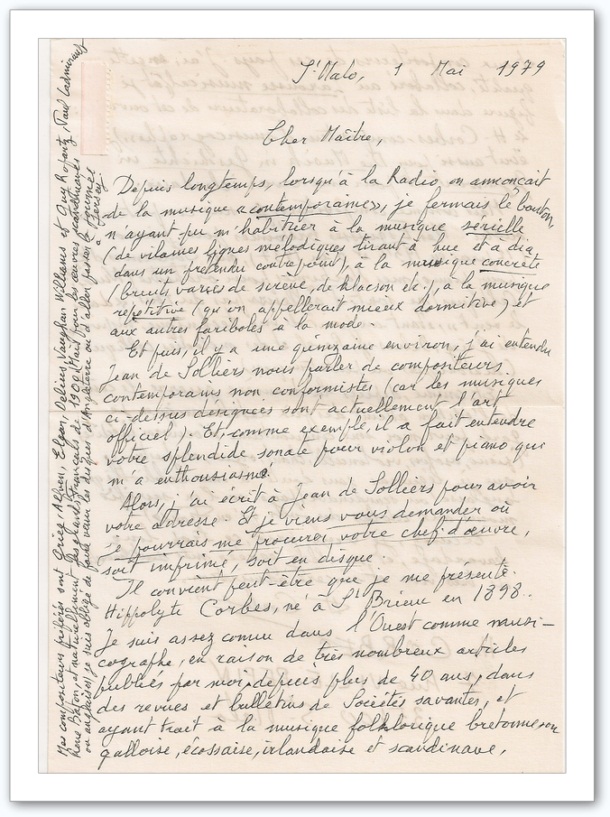 St Malo, 1 Mai 1979
Cher Maître,
Depuis longtemps, lorsqu'à la Radio on annonçait
de la musique «contemporaine», je fermais le bouton,
n'ayant pu m'habituer à la musique sérielle
(de vilaines lignes mélodiques tirant à hue et à dia
dans un prétendu contrepoint), à la musique concrète
(bruits variés de sirène, de klacson etc.), à la musique
répétitive (qu'on appellerait mieux dormitive) et
aux autres fariboles à la mode.
Et puis, il y a une quinzaine environ, j'ai entendu
Jean de Solliers nous parler de compositeurs
contemporains non conformistes (car les musiques
ci-dessus désignées sont actuellement l'art
officiel). Et, comme exemple, il a fait entendre
votre splendide sonate pour violon et piano que
m'a enthousiasmé.
Alors, j'ai écrit à Jean de Solliers pour avoir
votre adresse. Et je viens vous demander où
je pourrais me procurer votre chef d'œuvre,
soit imprimé, soit en disque.
Il convient peut-être que je me présente.
Hippolyte Corbes, né à St Brieuc en 1898.
Je suis assez connu dans l'Ouest comme musi-
cographe, en raison de très nombreux articles
publiés par moi, depuis plus de 40 ans, dans
des revues et bulletins de Sociétés savantes, et
ayant trait à la musique folklorique bretonne,
galloise, écossaise, irlandaise et scandinave.
Mes compositeurs préférés sont Grieg, Alfven, Elgar, Delius, Vaughan Williams et Guy Ropartz, Paul Ladmirault
René Baton, et naturellement les grands Français de 1900. Mais pour les œuvres
ou anglaises, je suis obligé de faire venir les disques d'Angleterre ou d'aller passer la journée
à Jersey.